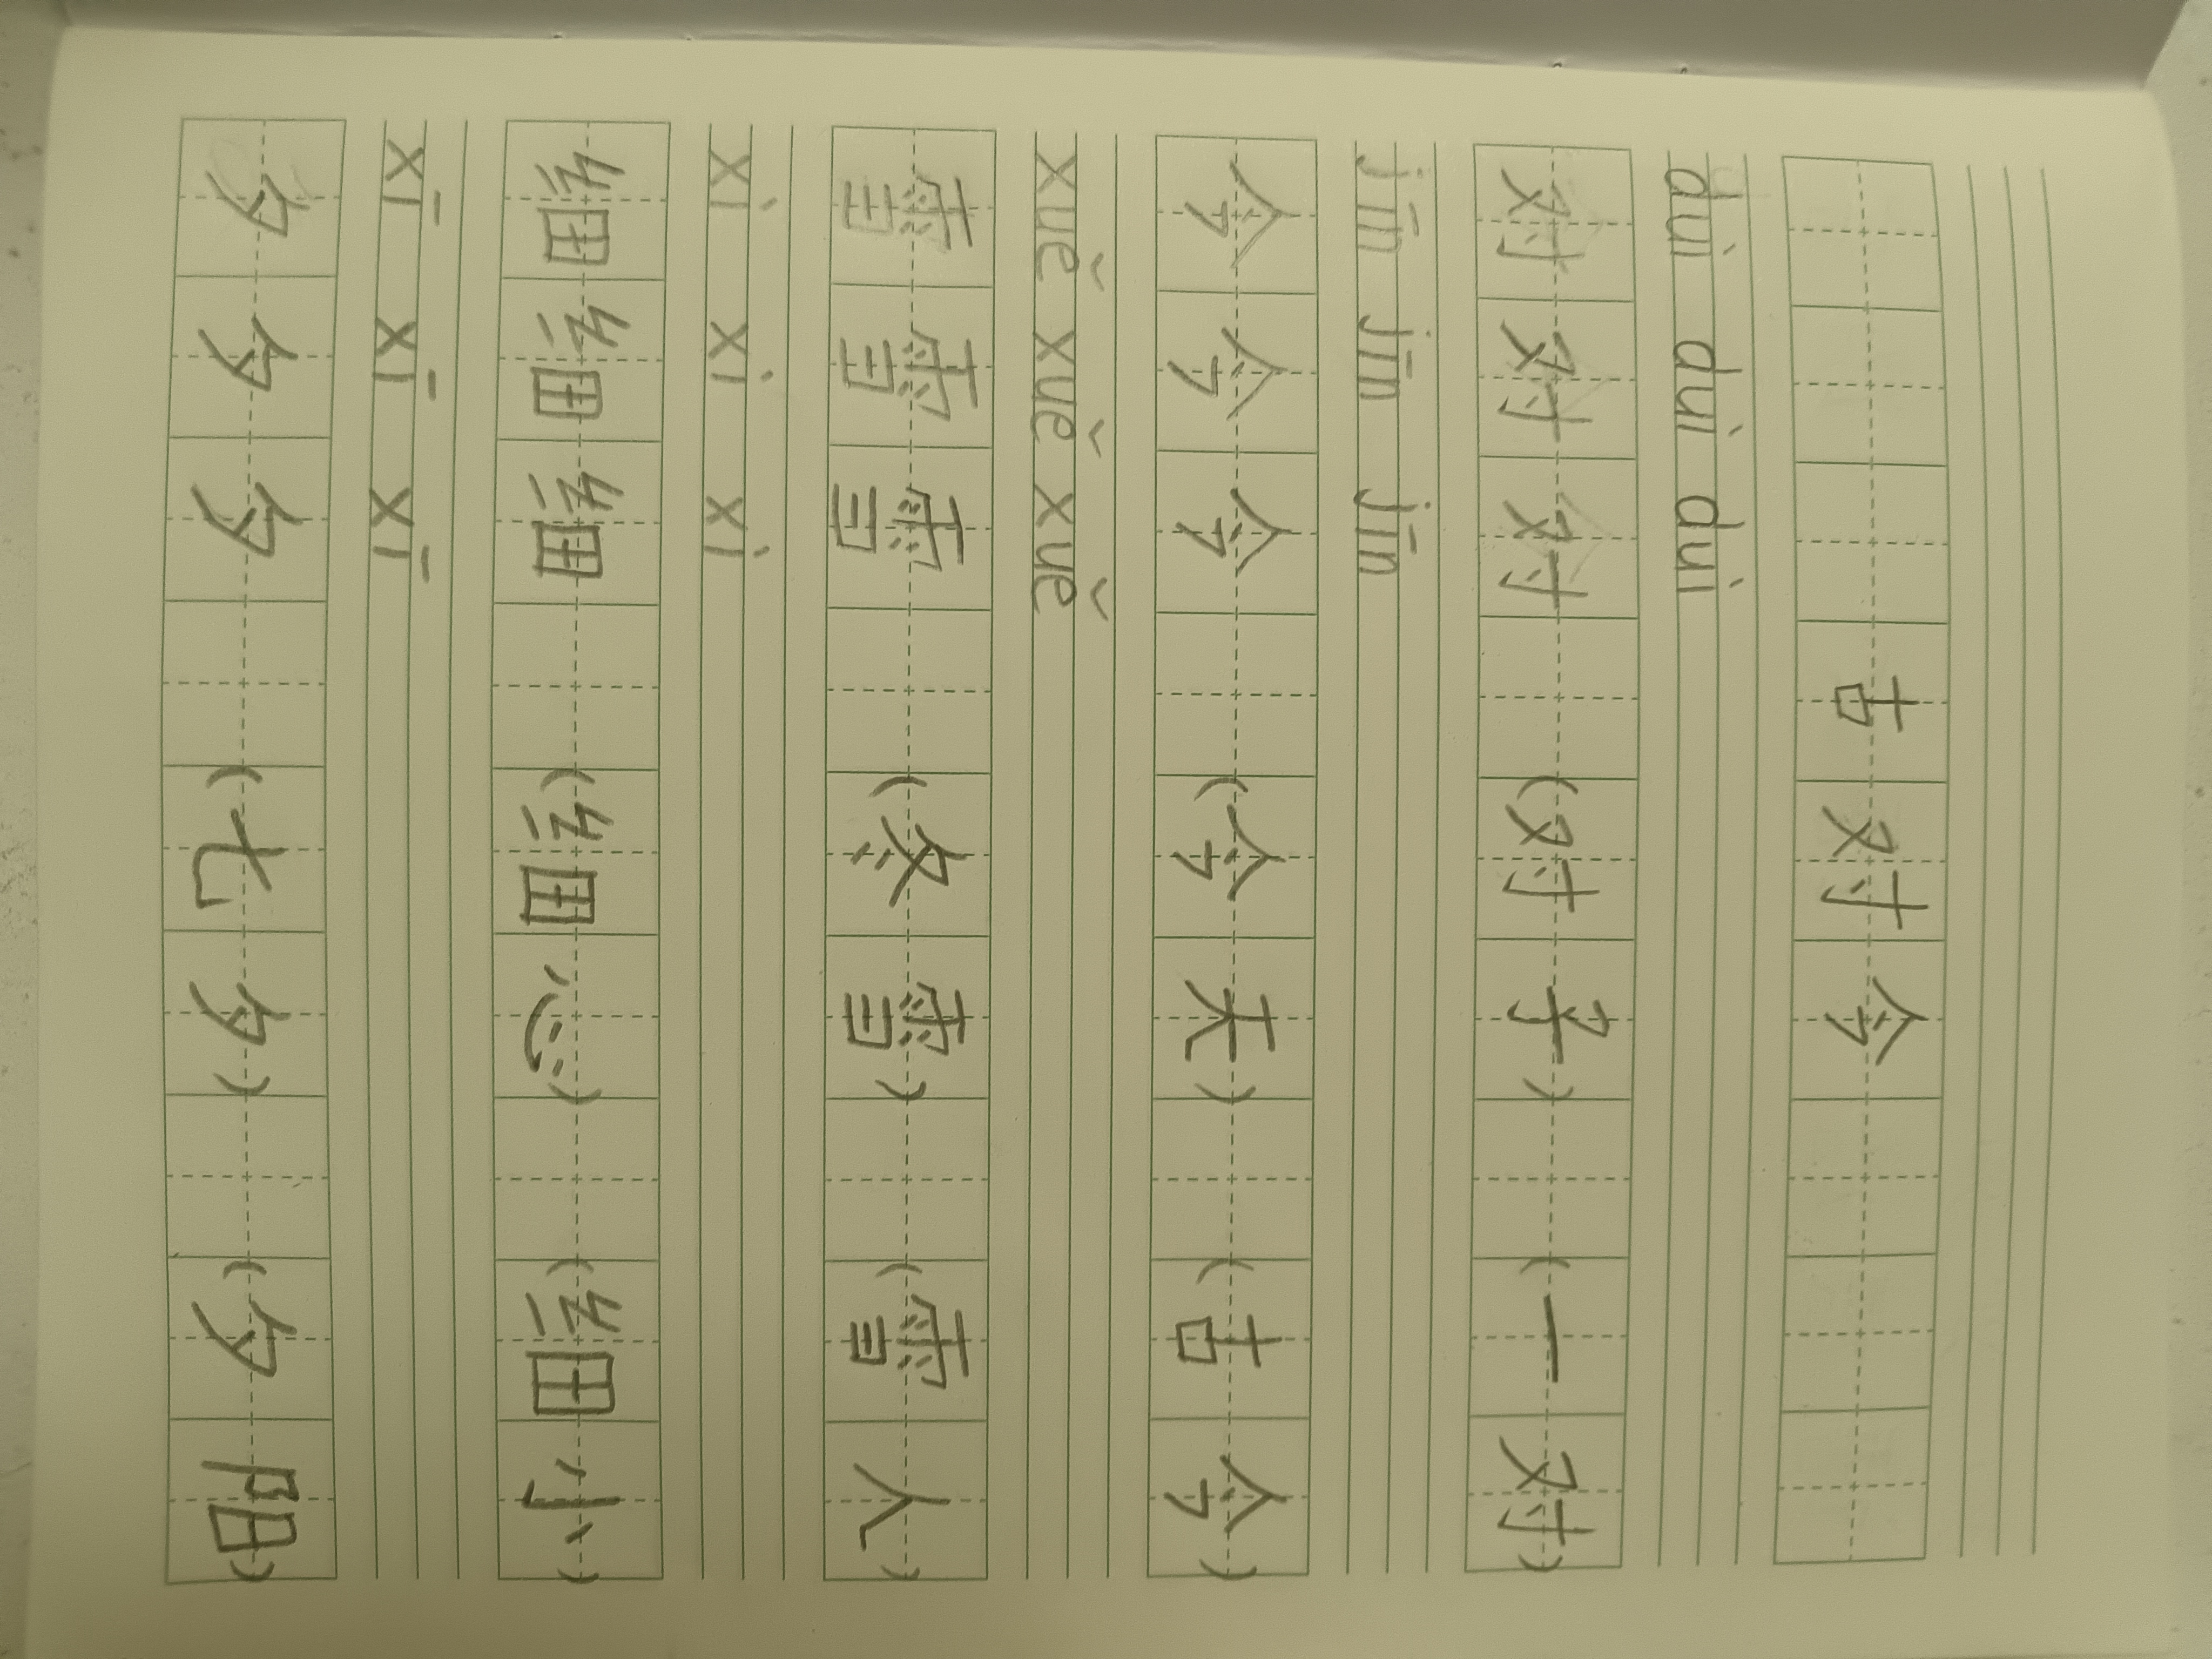 古对今
duì duì duì
对对对 (对子) (一对)
jīn jīn jīn
今今今 (今天) (古今)
xuě xuě xuě
雪雪雪 (冬雪) (雪人)
xì xì xì
细细细 (细心) (细小)
xī xī xī
夕夕夕 (七夕) (夕阳)